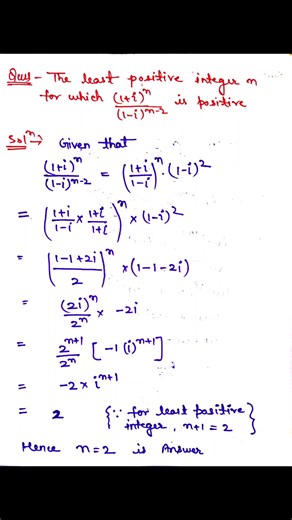 Ques - The least positive integer n
for which (1+i)^n / (1-i)^(n-2) is positive
Sol^n → Given that
(1+i)^n / (1-i)^(n-2) = ((1+i)/(1-i))^n · (1-i)^2
= ((1+i)/(1-i) × (1+i)/(1+i))^n × (1-i)^2
= ((1-1+2i)/2)^n × (1-1-2i)
= (2i)^n / 2^n × -2i
= 2^(n+1) / 2^n [-1 (i)^(n+1)]
= -2 × i^(n+1)
= 2 {∵ for least positive
integer, n+1 = 2}
Hence n=2 is Answer